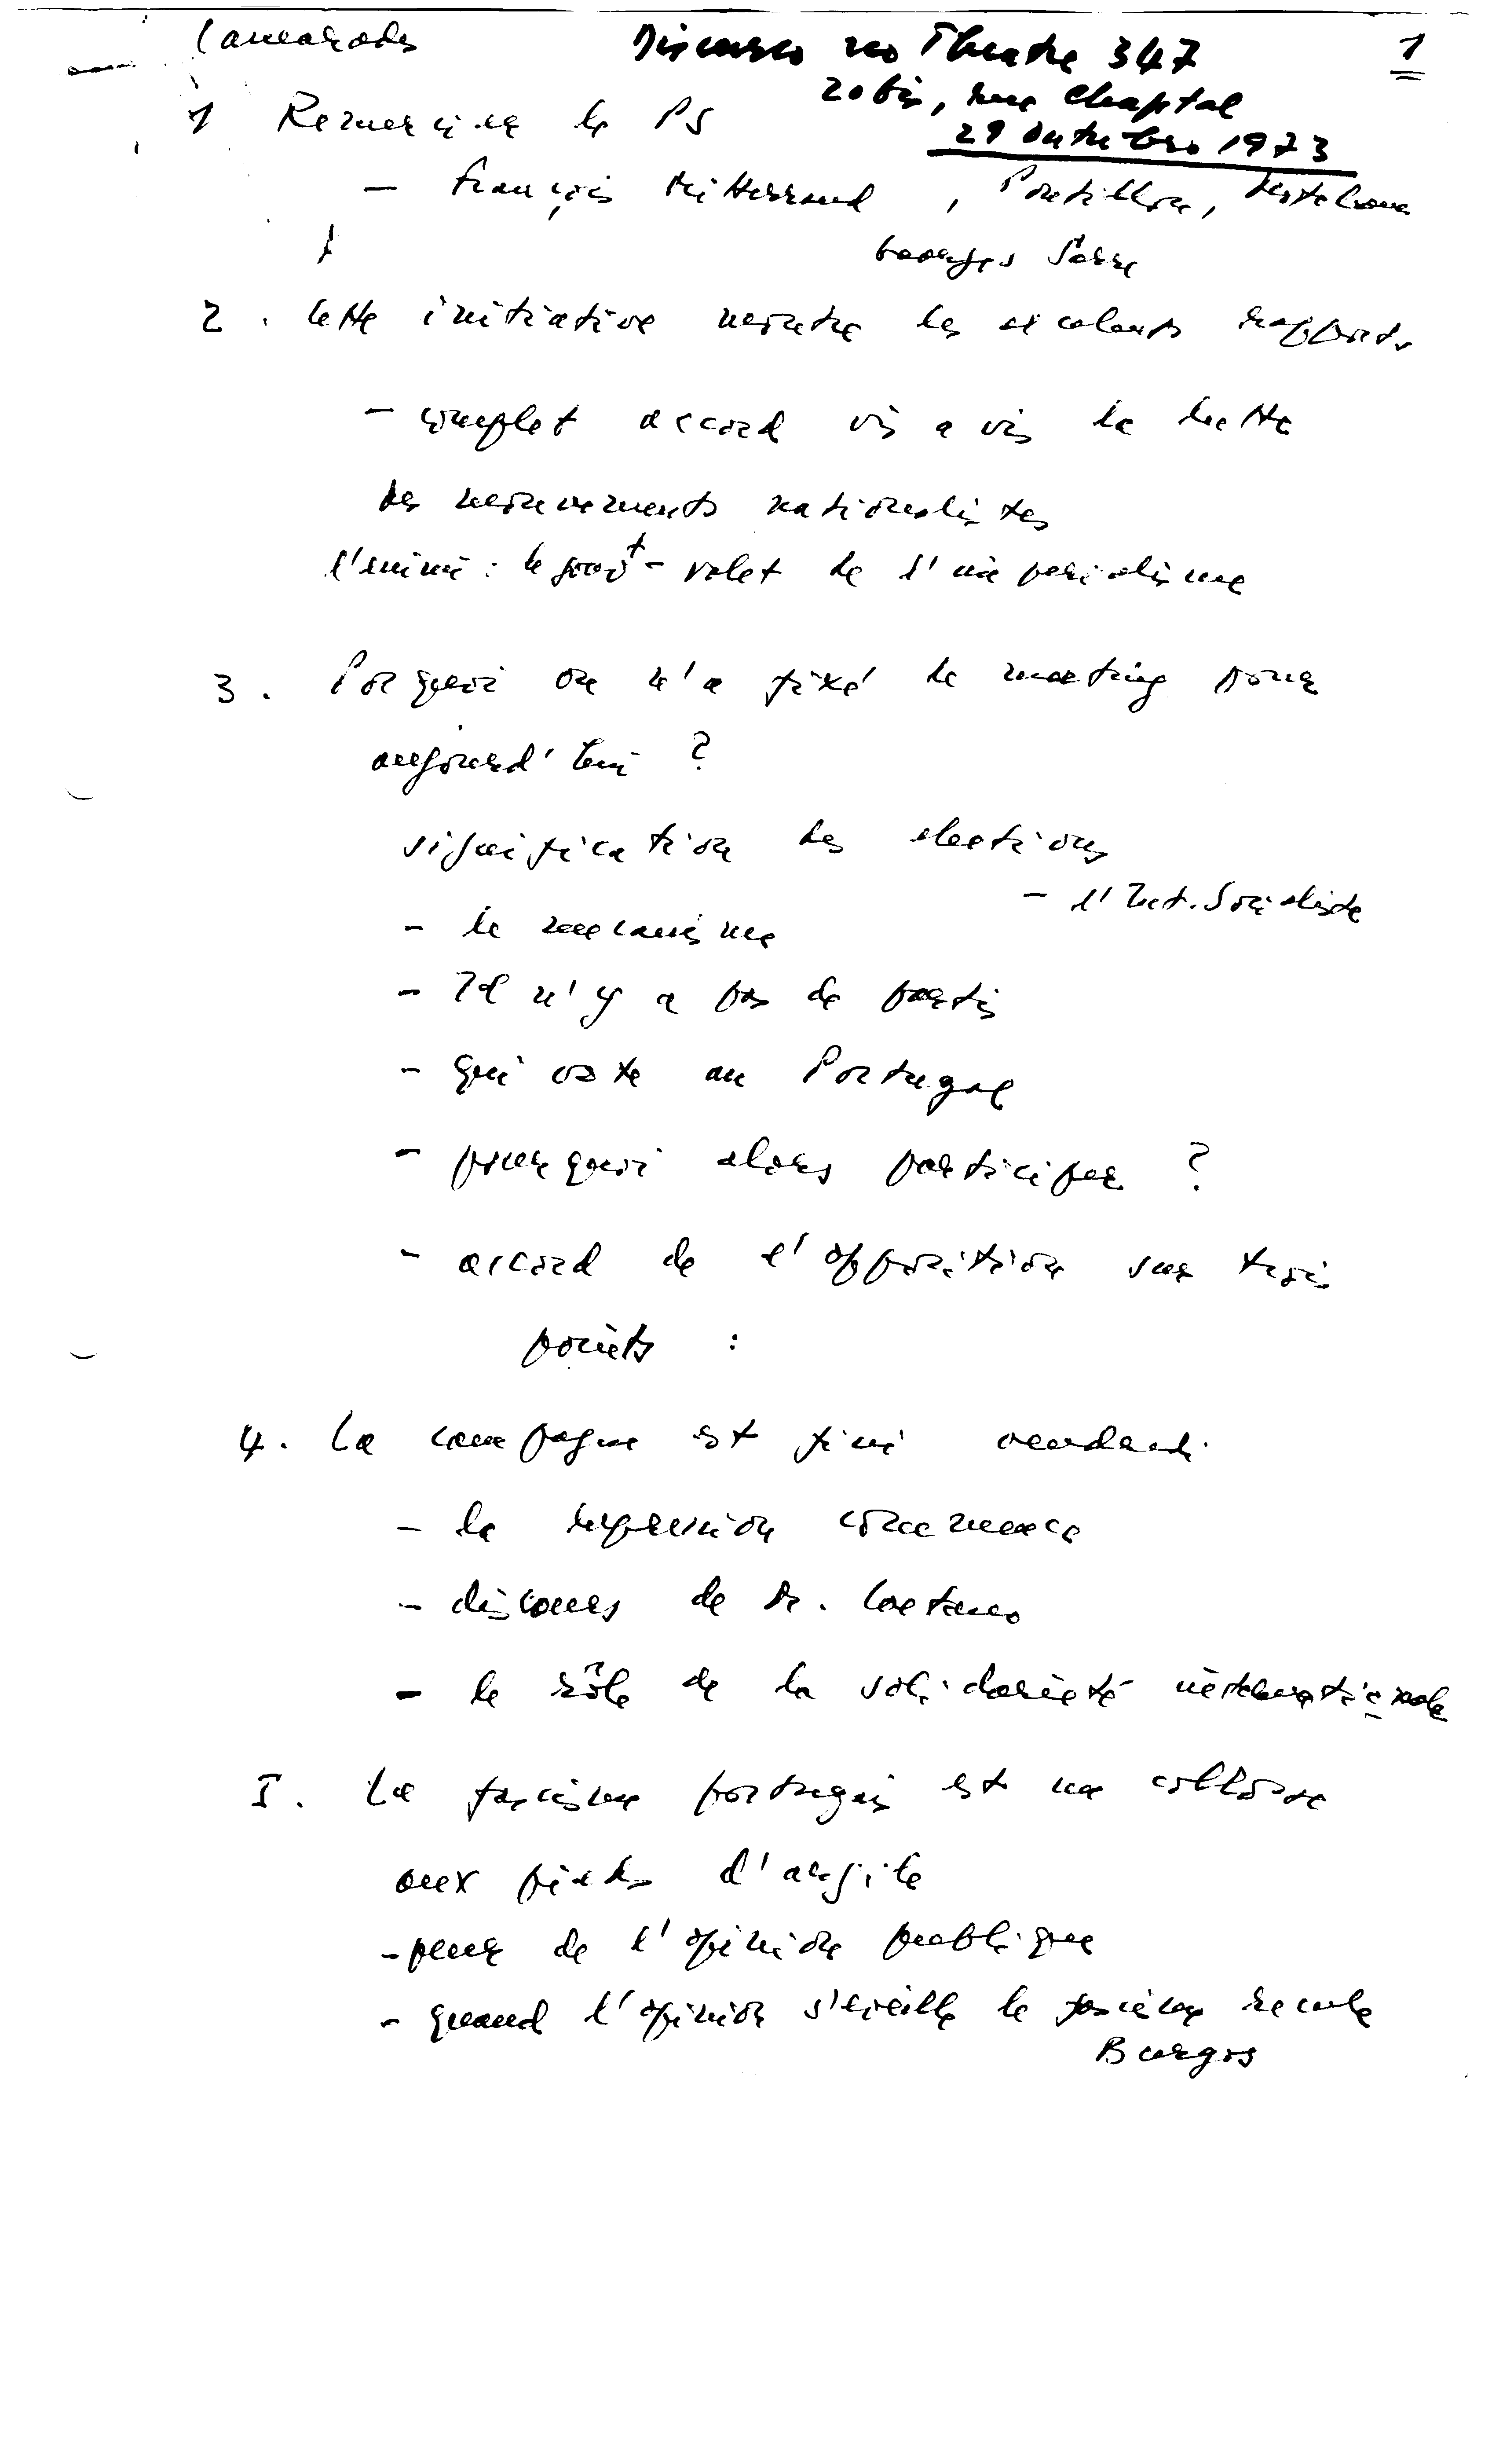 Camarades
Discurso no Theatre 347
1
20 bis, rue Chaptal
29 Outubro 1973
1 Remercier le PS
- François Mitterrand, Pontillon,
Georges Sarre
2. Cette initiative montre les excelents rapports
- complet accord vis a vis la lutte
des mouvements nationalistes
l'enimi : le govt - valet de l'imperialisme
3. Porquoi on n'a fixé le meeting pour
aujourd'hui ?
signification des elections
- l'Int. Socialiste
- le mecanisme
- Il n'y a pas de partis
- qui vote au Portugal
- pourquoi alors participer ?
- accord de l'opposition sur trois
points :
4. La campagne est fini
- la repression commence
- discours de M. Caetano
- le rôle de la solidarieté internationale
5. Le fascisme portugais est un collosse
aux pieds d'argile
- peur de l'opinion publique
- quand l'opinion s'eveille le fascisme recule
Burgos